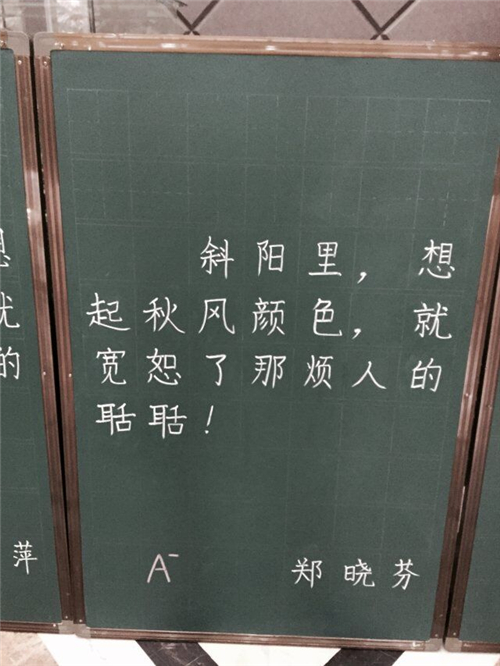 的
萍
斜阳里，想
起秋风颜色，就
宽恕了那烦人的
聒聒！
A-
郑晓芬